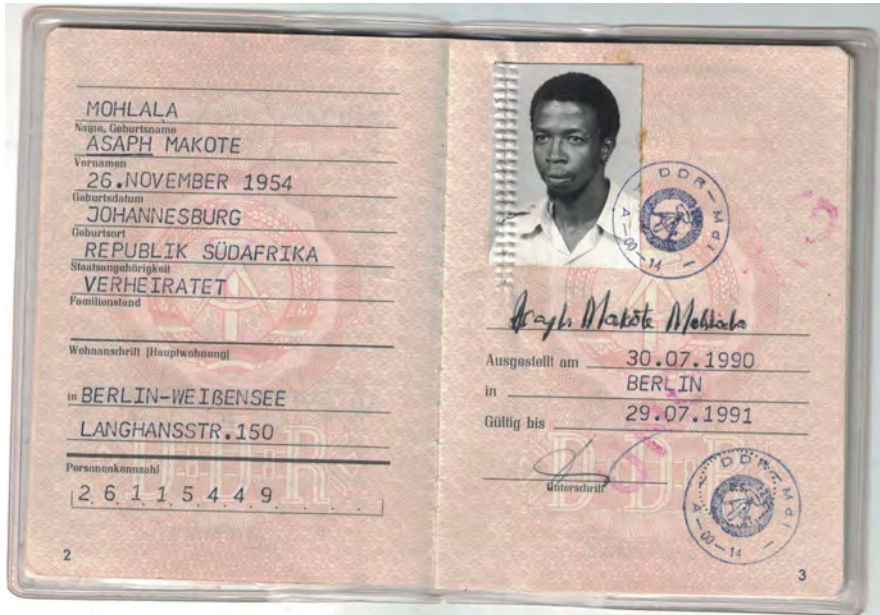 MOHLALA
Name, Geburtsname
ASAPH MAKOTE
Vornamen
26.NOVEMBER 1954
Geburtsdatum
JOHANNESBURG
Geburtsort
REPUBLIK SÜDAFRIKA
Staatsangehörigkeit
VERHEIRATET
Familienstand
Wohnanschrift [Hauptwohnung]
in BERLIN-WEIßENSEE
LANGHANSSTR.150
Personenkennzahl
26115449
2
DDR-MdI
A-00-14
Asaph Makote Mohlala
Ausgestellt am 30.07.1990
in BERLIN
Gültig bis 29.07.1991
Unterschrift
DDR-MdI
A-00-14
D·D·R
D·D·R
3